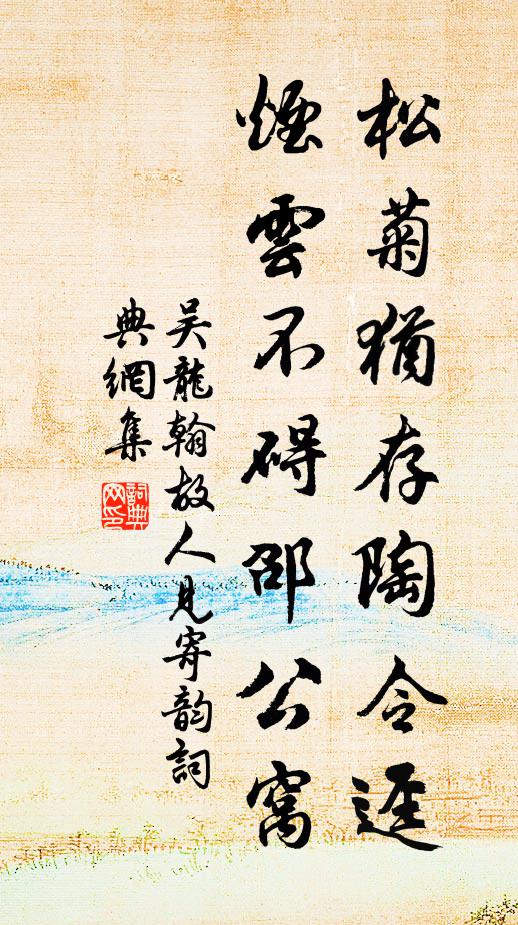 松菊猶存陶令逕
煙雲不碍邵公窩
吴龍翰故人見寄韵詞
典網集
詞典
网印